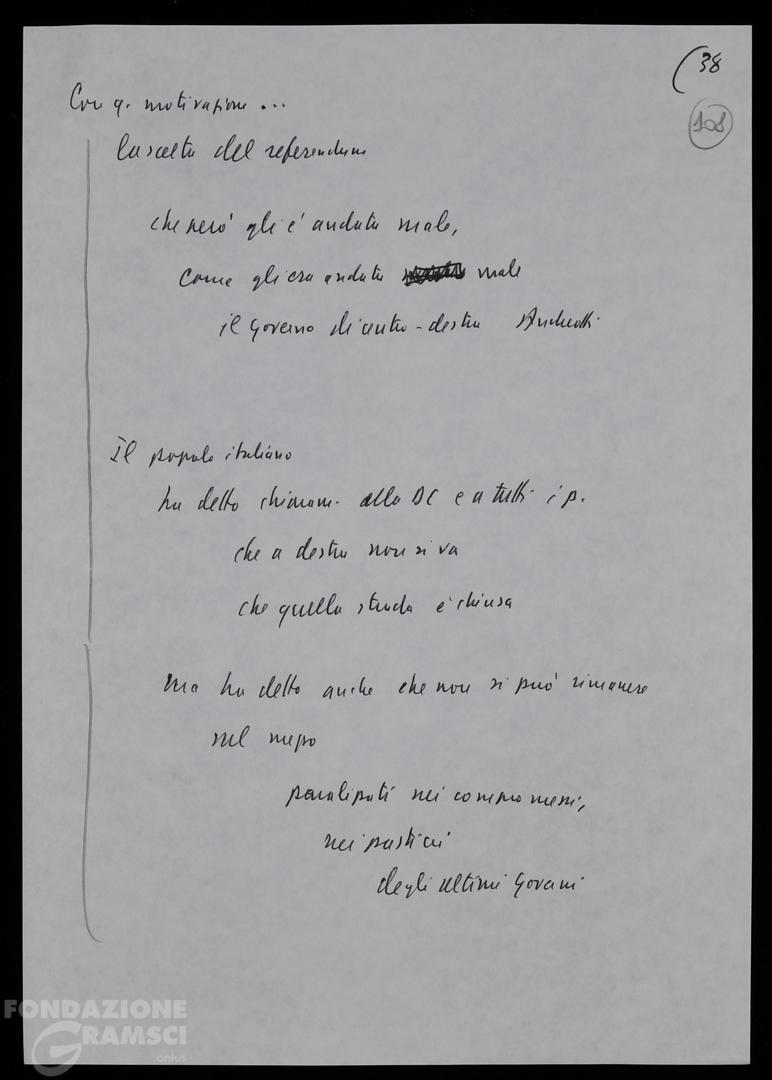 (38
108
Con q. motivazione ...
la scelta del referendum
che però gli è andata male,
come gli era andato male
il Governo di centro-destra Andreotti
Il popolo italiano
ha detto chiaram. alla DC e a tutti i p.
che a destra non si va
che quella strada è chiusa
Ma ha detto anche che non si può rimanere
nel mezzo
paralizzati nei compromessi,
nei pasticci
degli ultimi Governi
FONDAZIONE
GRAMSCI
onlus